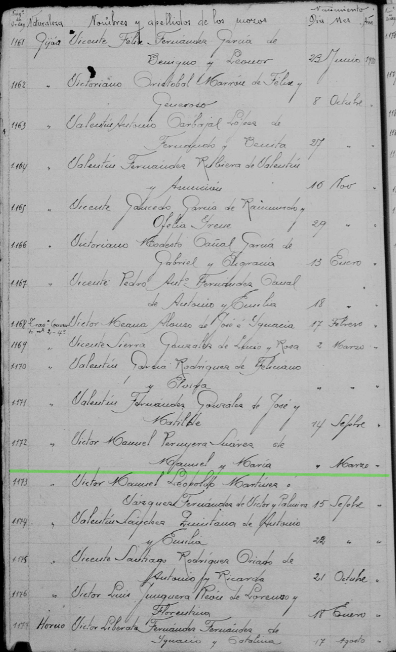 Naturaleza Nombres y apellidos de los mozos Nacimiento
Día Mes Año
1161 Gijón Vicente Felix Fernandez García de
Benigno y Leonor 29 Junio
1162 " Victoriano Cristobal Marrón de Felix y
Generosa 8 Octubre "
1163 " Valentín Antonio Carbajal de
Fernando y 27 " "
1164 " Valentín Fernandez de Valentín
y Asunción 16 Nov "
1165 " Vicente García de Raimundo y
Ofelia Irene 29 " "
1166 " Victoriano Modesto Cañal García de
Gabriel y 13 Enero "
1167 " Vicente Pedro Ant. Fernández Canal
de Antonio y Emilia 18 " "
1168 Victor Meana Alonso de José e Ygnacia 17 Febrero "
1169 " Vicente Sierra González de y Rosa 2 Marzo "
1170 " Valentín García Rodriguez de
y Elvira " " "
1171 " Valentín Fernandez Gonzalez de José y
Matilde 14 Sepbre "
1172 " Victor Manuel Perugera Suarez de
Manuel y María " Marzo "
1173 " Victor Manuel Leopoldo Martinez
Vazquez Fernández de Victor y 15 Sepbre "
1174 " Valentín Sanchez Quintana de Antonio
y Emilia 22 " "
1175 " Vicente Santiago Rodriguez de
Antonio y Ricarda 21 Octubre "
1176 " Victor Luis Junquera de Lorenzo y
Florentina 18 Enero "
1177 Victor Fernández Fernández de
Ygnacio y Catalina 17 Agosto "